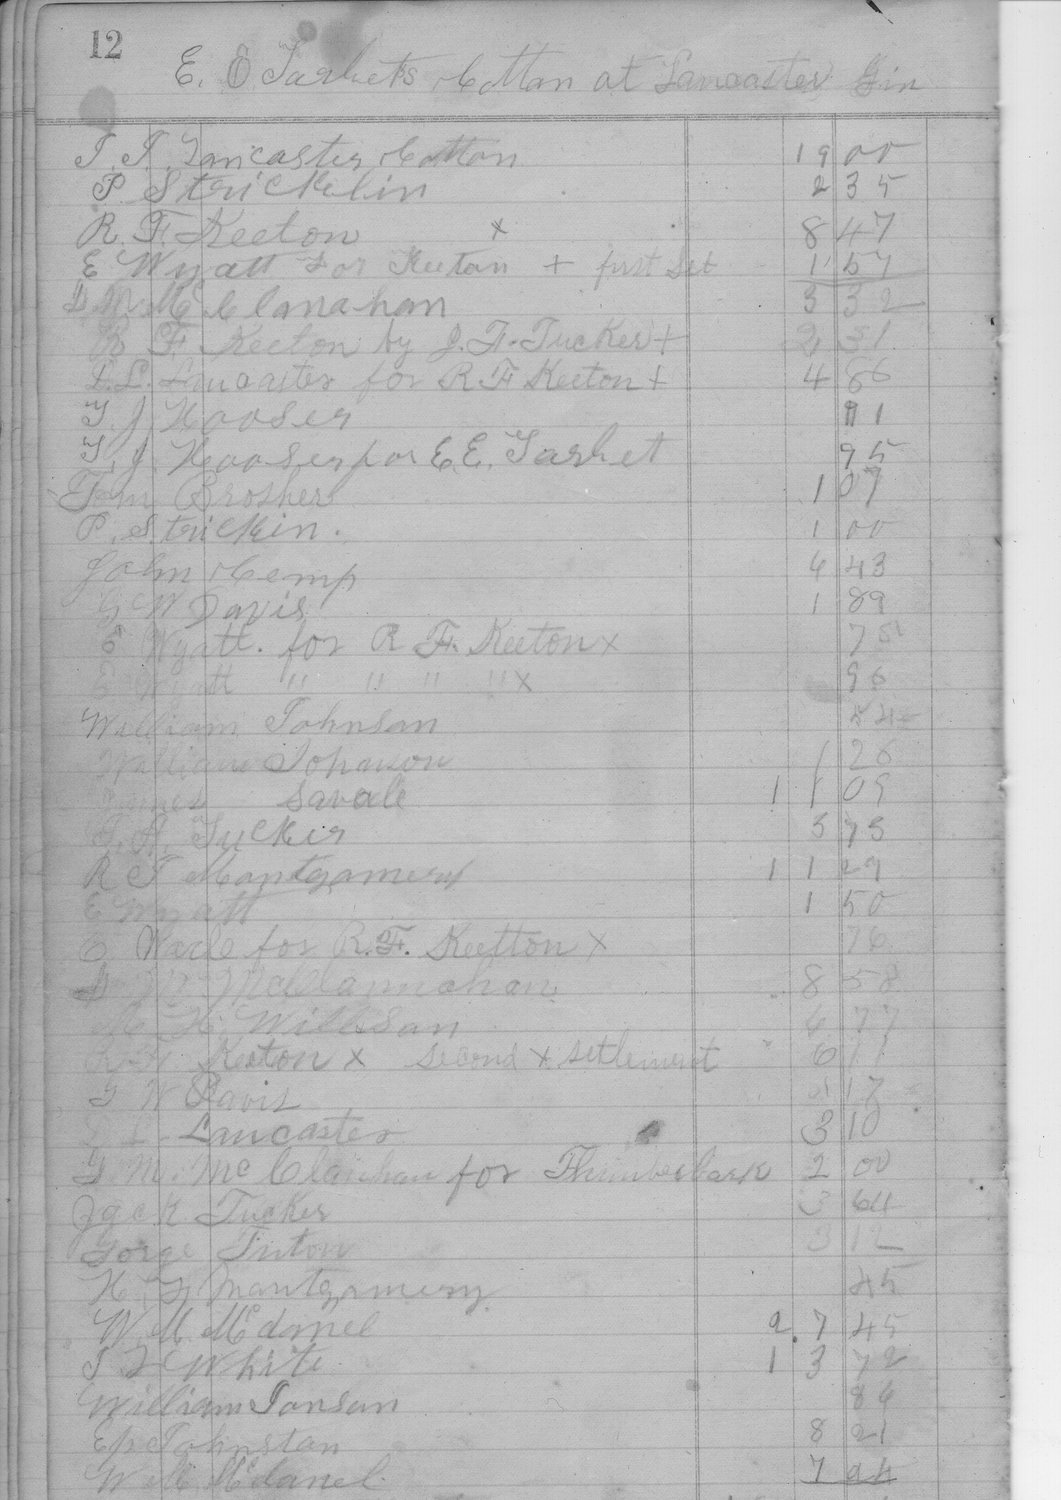 12
E. E Tarbets Cotton at Lancaster Gin
T. T. Lancaster Cotton 19 00
P Stricklin 2 35
R. F. Keeton x 8 47
E Wyatt for Keeton + first Set 1 57
McClanahan 3 32
R F. Keeton by J. F. Tucker + 2 31
L. L. Lancaster for R F Keeton + 4 66
T. J Hooser 91
T. J. Hooser for E. E. Tarbet 95
Tom Brosher 1 07
P. Strickin. 1 00
John Kemp 4 43
G W Davis 1 89
E Wyatt. for R F. Keeton x 75
E Wyatt " " " " x 96
William Johnson
William Johnson 1 26
James Savale 1 1 09
Tucker 5 75
R T Montgomery 1 1 29
E Wyatt 1 50
Wade for R. F. Keetton x 76
McClannahan 8 58
Willson 6 77
Keeton x Second x settlement 6 11
W Davis 17
L Lancaster 3 10
M. McClanhan for 2 00
Jack Tucker 3 64
Gorge Tuton 3 12
Montgomery 45
W. M. McDanel 2. 7 45
White 1 3 72
William Jonson 86
Ep Johnston 8 21
W M McDanel 7 94